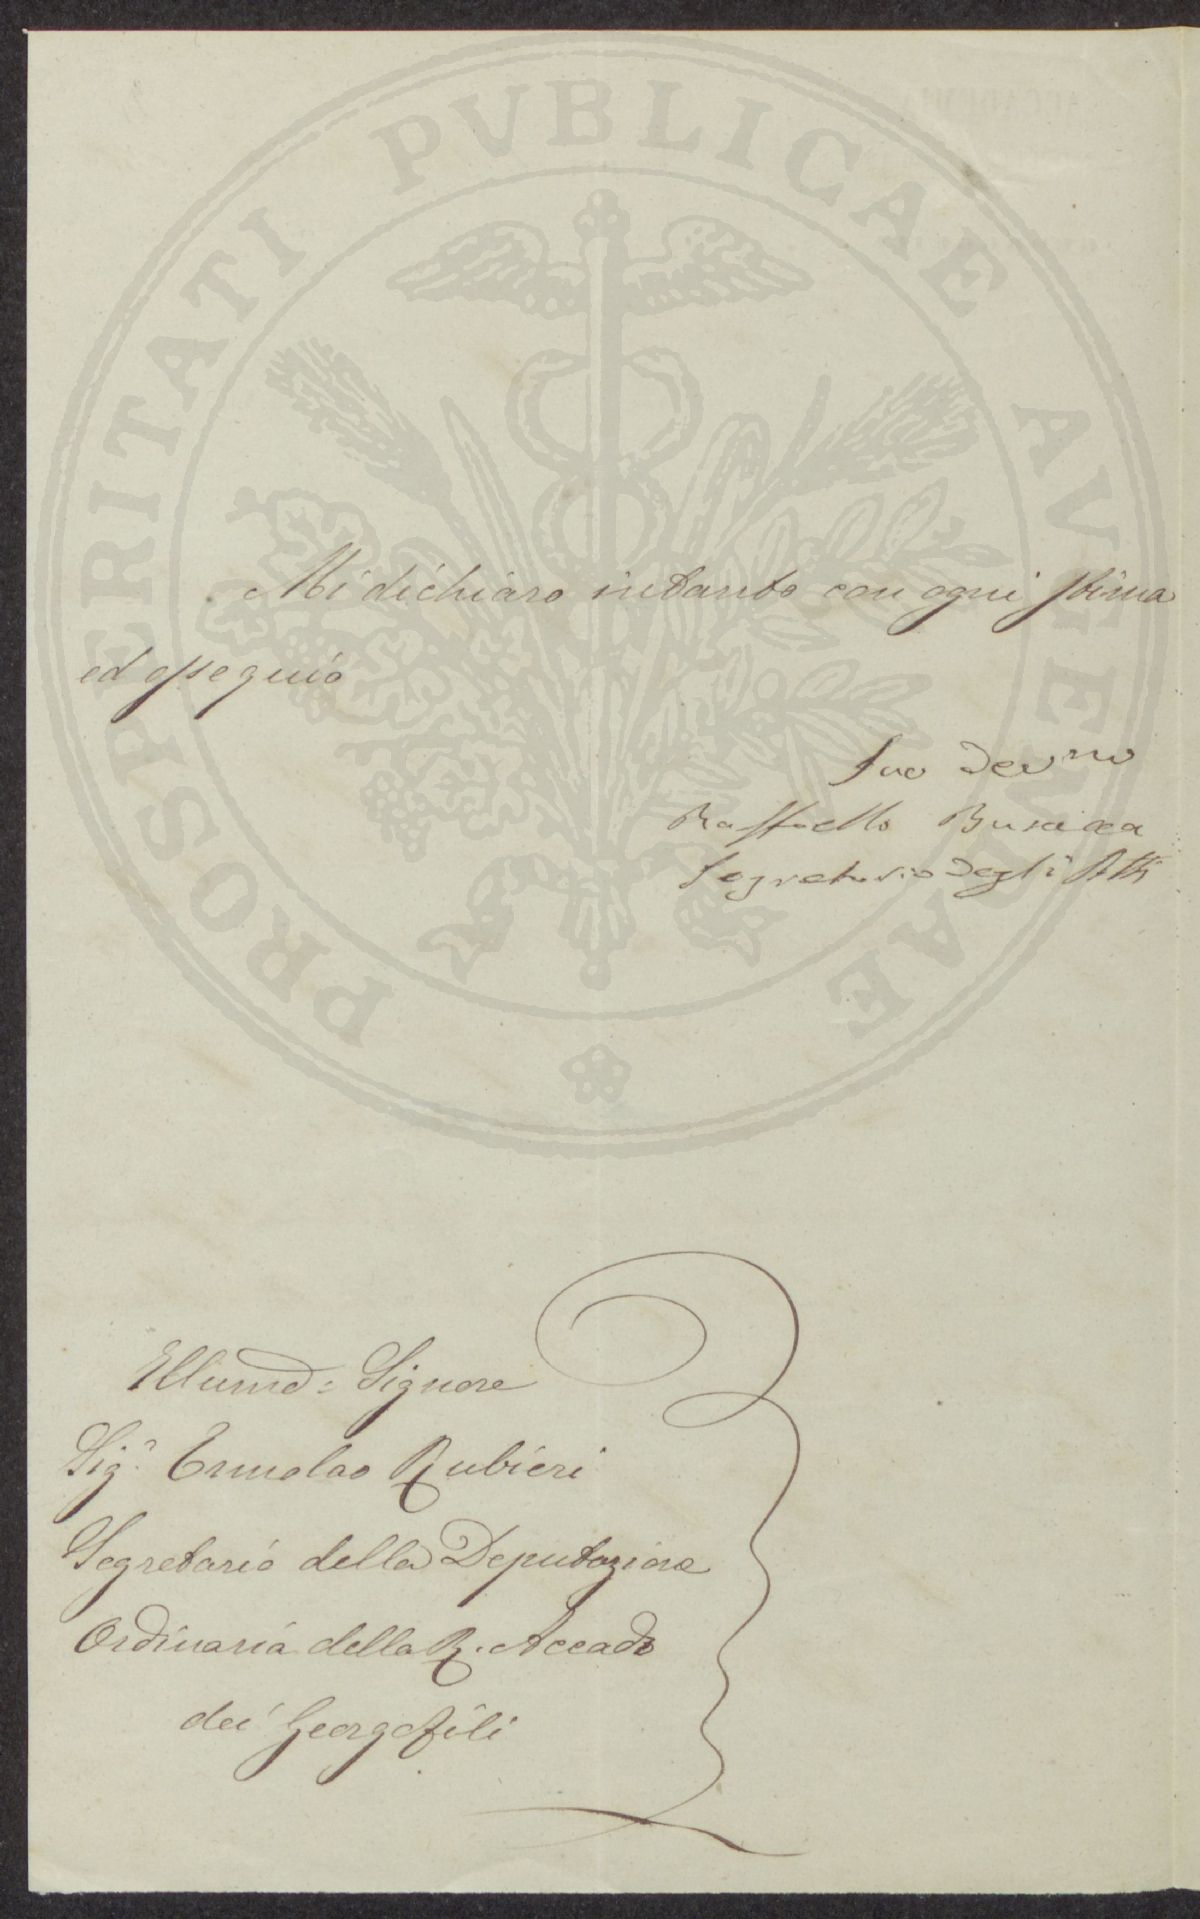 PROSPERITATI PVBLICAE AVGENDAE
Mi dichiaro intanto con ogni stima
ed ossequio
Suo Devmo
Raffaello Busacca
Segretario degli Atti
Illumo: Signore
Sigr. Ermolao Rubieri
Segretario della Deputazione
Ordinaria della R. Accada
dei Georgofili